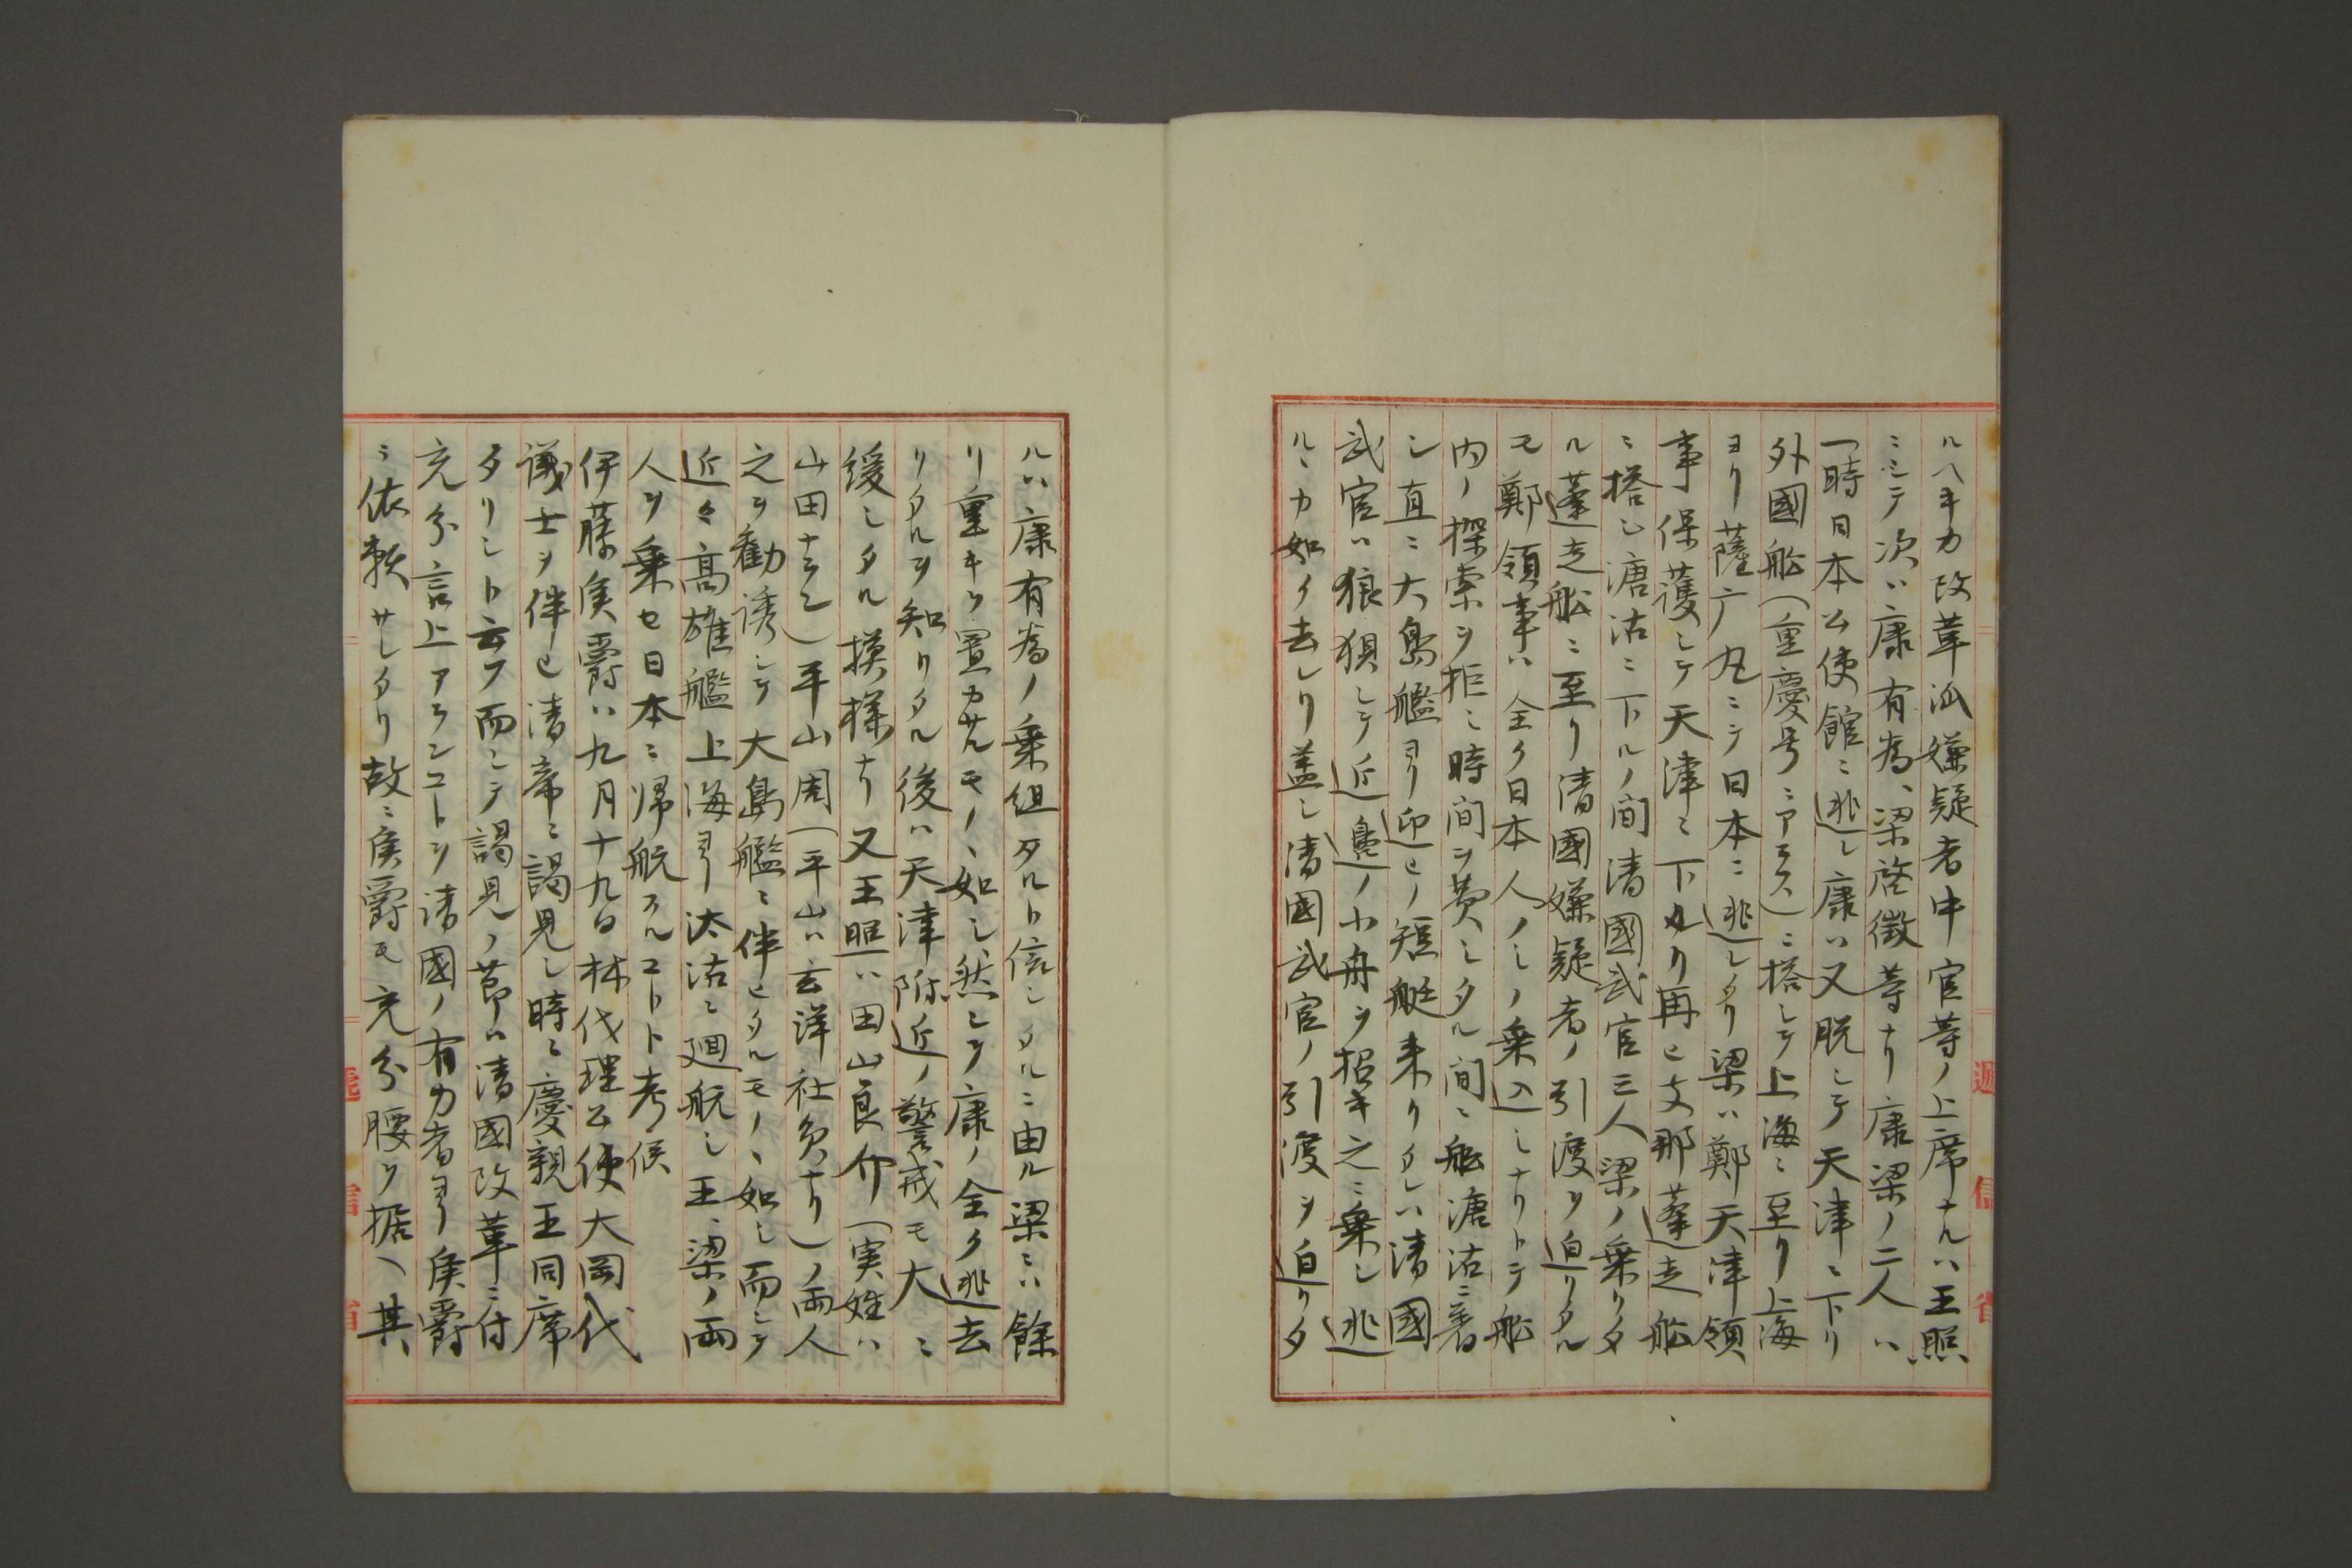 ルヘキカ改革派嫌疑者中官等ノ上席ナルハ王照
ニシテ次ハ康有為、梁啓徴等ナリ康梁ノ二人ハ
一時日本公使館ニ逃レ康ハ又脱シテ天津ニ下リ
外國舩(重慶号ニアラス)ニ搭シテ上海ニ至リ上海
ヨリ薩广丸ニテ日本ニ逃レタリ梁ハ鄭天津領
事保護シテ天津ニ下タリ再ヒ支那蓬走舩
ニ搭シ溏沽ニ下ルノ間清國武官三人梁ノ乗リタ
ル蓬走舩ニ至リ清國嫌疑者ノ引渡ヲ迫リタル
モ鄭領事ハ全ク日本人ノミノ乗込ミナリトテ舩
内ノ探索ヲ拒ミ時间ヲ費シタル间ニ舩溏沽ニ著
シ直ニ大島艦ヨリ迎ヒノ短艇来リタレハ清國
武官ハ狼狽シテ近邊ノ小舟ヲ招キ之ニ乗シ逃
ルヽカ如ク去レリ蓋シ清國武官ノ引渡ヲ迫リタ
ルハ康有為ノ乗組タルト信シタルニ由ル梁ニハ餘
リ重キヲ置カサルモノヽ如シ、然シテ康ノ全ク逃去
リタルヲ知リタル後ハ天津附近ノ警戒モ大ニ
緩ミタル摸様ナリ又王照ハ田山良介(実姓ハ
山田ナラン)平山周(平山ハ玄洋社員ナリ)ノ両人
之ヲ勧誘シテ大島艦ニ伴ヒタルモノヽ如シ而シテ
近々高雄艦上海ヨリ汰沽ニ廻航シ王、梁ノ両
人ヲ乗セ日本ニ帰航スルコトト考候
伊藤侯爵ハ九月十九日林代理公使大岡代
議士ヲ伴ヒ清帝ニ謁見シ時ニ慶親王同席
タリシト云フ而シテ謁見ノ節ハ清國改革ニ付
充分言上アランコトヲ清國ノ有力者ヨリ侯爵
ニ依頼サレタリ故ニ侯爵モ充分腰ヲ据ヘ其
逓信省
逓信省